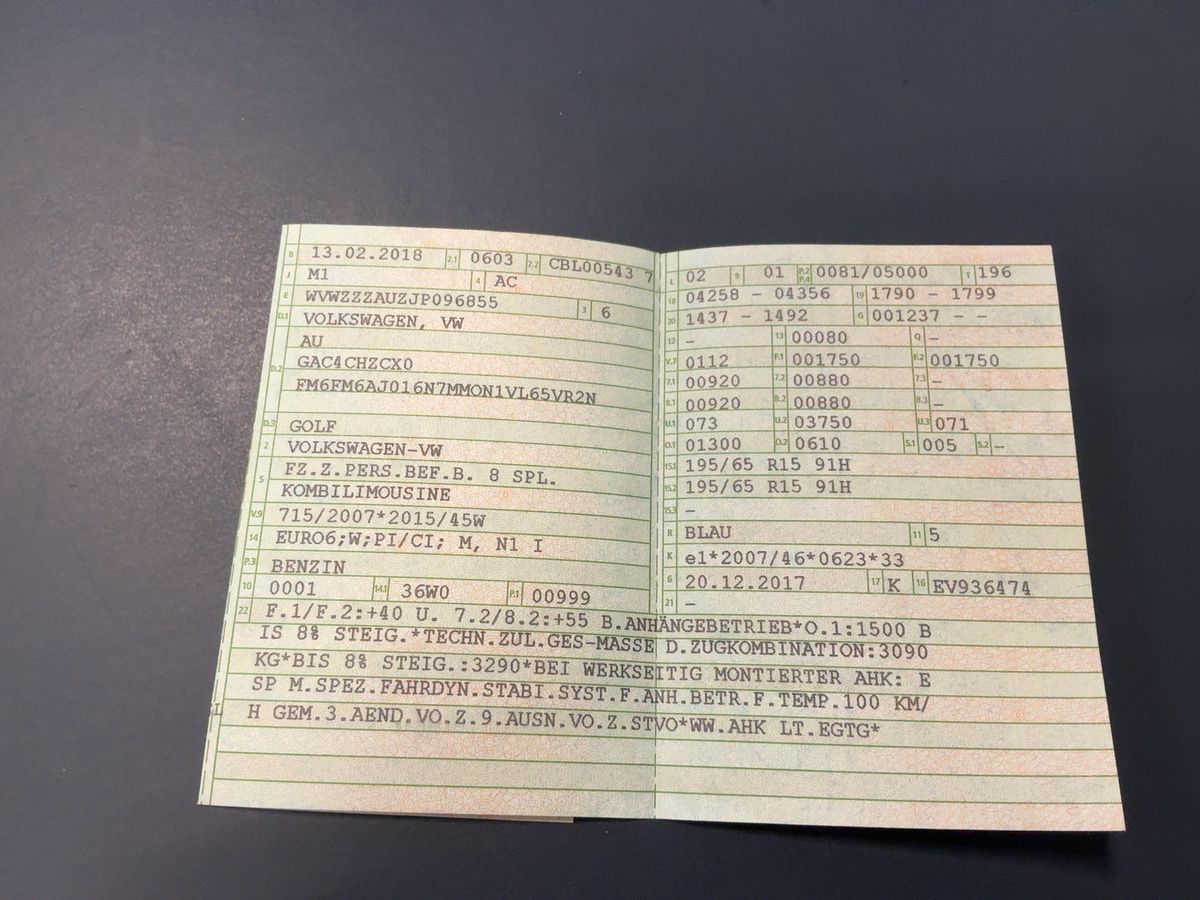 B 13.02.2018 2.1 0603 2.2 CBL00543 7
J M1 4 AC
E WVWZZZAUZJP096855 3 6
D.1 VOLKSWAGEN, VW
AU
D.2 GAC4CHZCX0
FM6FM6AJ016N7MMON1VL65VR2N
D.3 GOLF
2 VOLKSWAGEN-VW
5 FZ.Z.PERS.BEF.B. 8 SPL.
KOMBILIMOUSINE
V.9 715/2007*2015/45W
14 EURO6;W;PI/CI; M, N1 I
P.3 BENZIN
10 0001 14.1 36W0 P.1 00999
L 02 9 01 P.2 P.4 0081/05000 T 196
18 04258 - 04356 19 1790 - 1799
20 1437 - 1492 G 001237 - -
12 - 13 00080 Q -
V.7 0112 F.1 001750 F.2 001750
7.1 00920 7.2 00880 7.3 -
8.1 00920 8.2 00880 8.3 -
U.1 073 U.2 03750 U.3 071
O.1 01300 O.2 0610 S.1 005 S.2 -
15.1 195/65 R15 91H
15.2 195/65 R15 91H
15.3 -
R BLAU 11 5
K e1*2007/46*0623*33
6 20.12.2017 17 K 16 EV936474
21 -
22 F.1/F.2:+40 U. 7.2/8.2:+55 B.ANHÄNGEBETRIEB*O.1:1500 B
IS 8% STEIG.*TECHN.ZUL.GES-MASSE D.ZUGKOMBINATION:3090
KG*BIS 8% STEIG.:3290*BEI WERKSEITIG MONTIERTER AHK: E
SP M.SPEZ.FAHRDYN.STABI.SYST.F.ANH.BETR.F.TEMP.100 KM/
H GEM.3.AEND.VO.Z.9.AUSN.VO.Z.STVO*WW.AHK LT.EGTG*